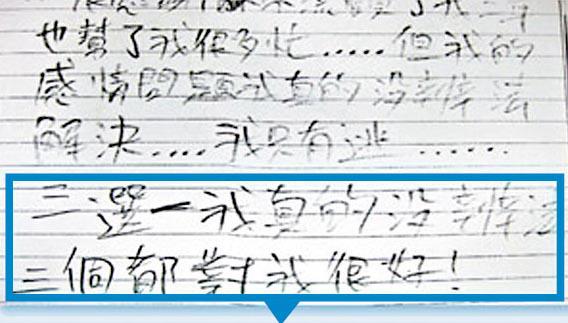 了我
也幫了我很多忙.....但我的
感情問題我真的沒辦法
解決.....我只有逃......
三選一我真的沒辦法
三個都對我很好!